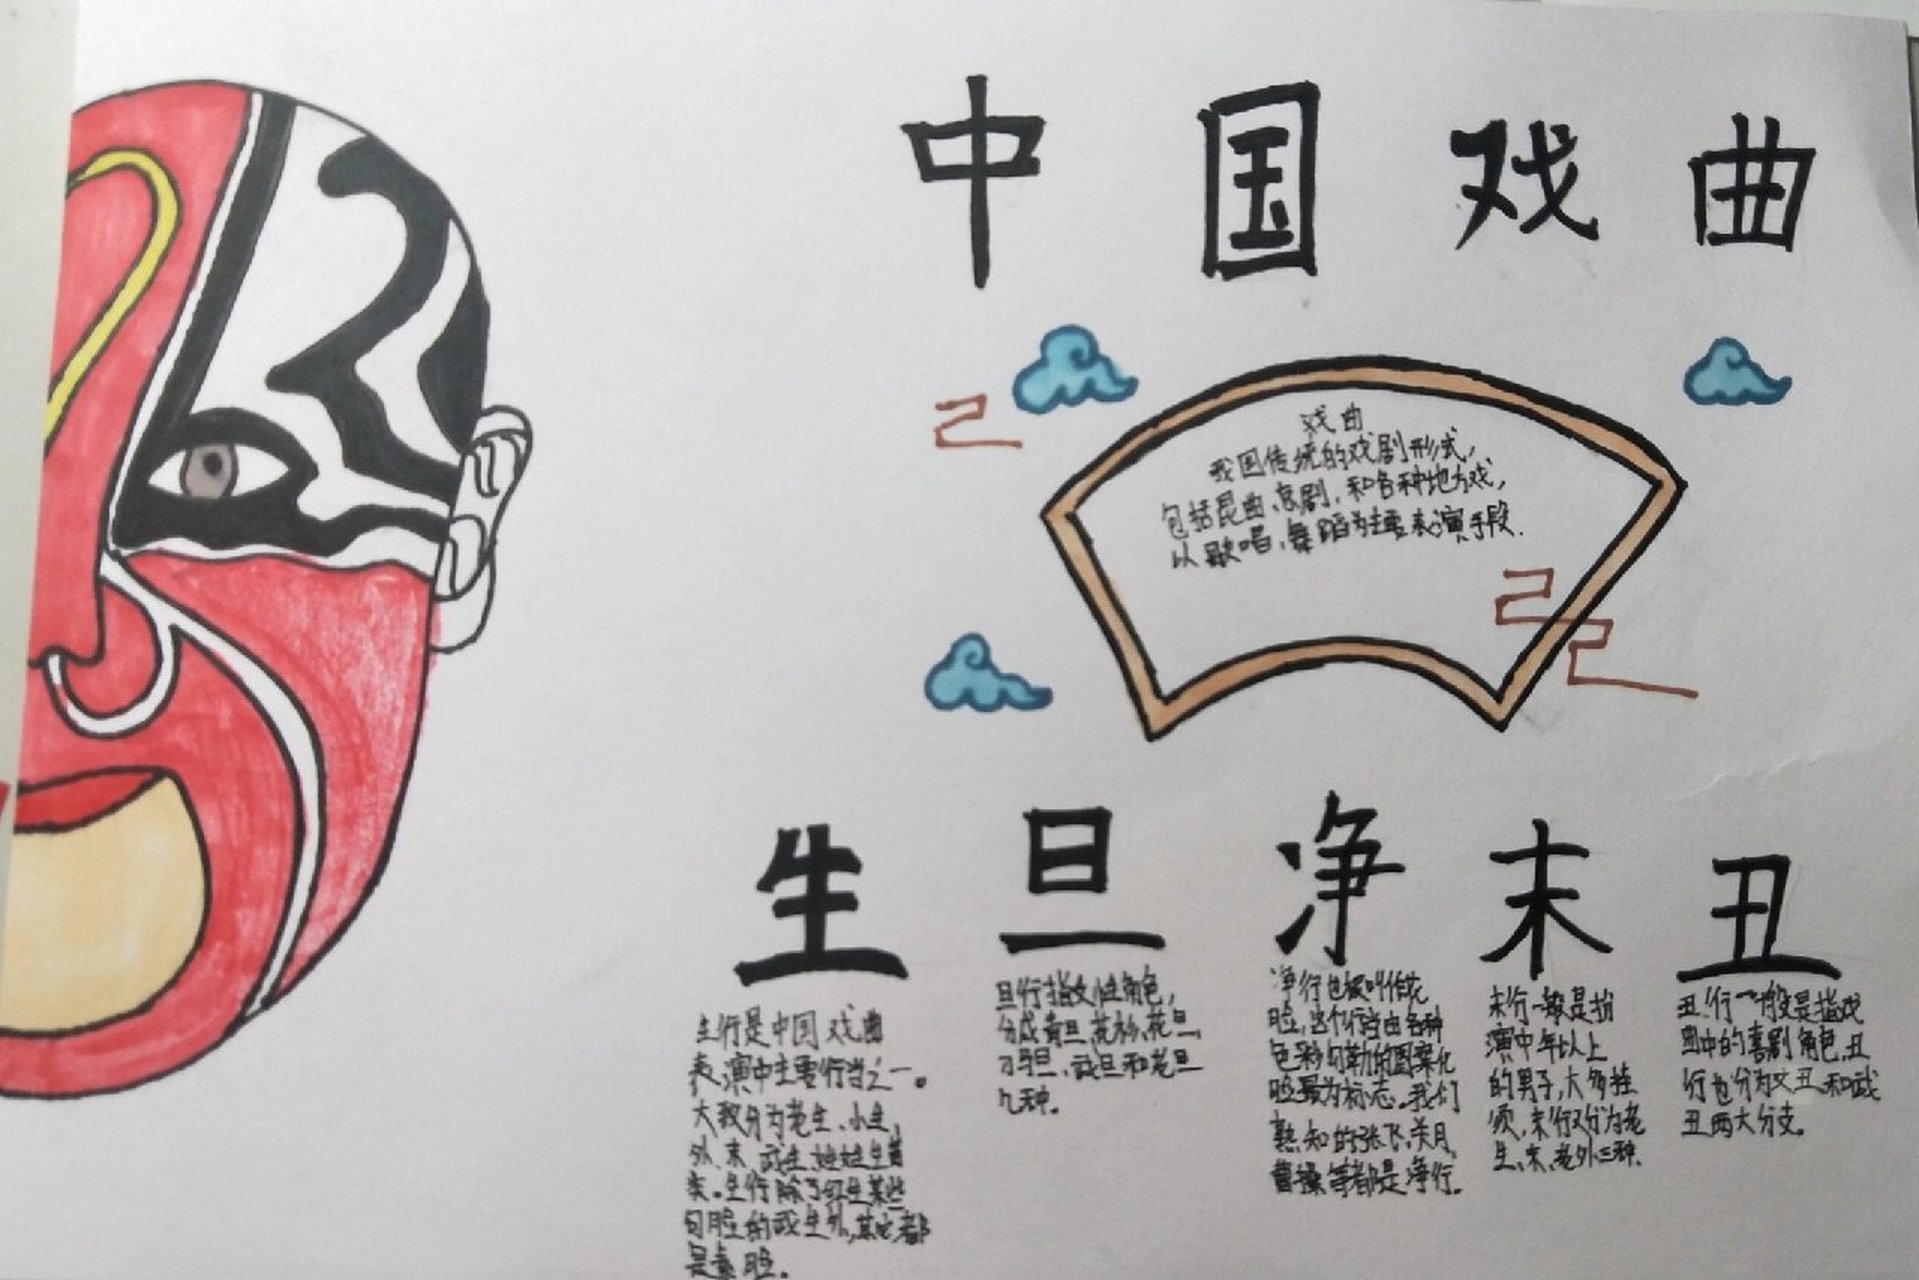 中国戏曲
戏曲
我国传统的戏剧形式，
包括昆曲、京剧，和各种地方戏，
以歌唱，舞蹈为主要表演手段．
生旦净末丑
生行是中国戏曲
表演中主要行当之一。
大致分为老生、小生，
外、末、武生、娃娃生等
类。生行除了红生某些
勾脸的武生外，其它都
是素脸。
旦行指女性角色，
分成青旦、花衫、花旦、
刀马旦、武旦和老旦
几种．
净行也被叫作花
脸，这个行当由各种
色彩勾勒的图案化
脸最为标志。我们
熟知的张飞、关羽、
曹操等都是净行。
末行一般是扮
演中年以上
的男子，大多挂
须，末行又分为老
生、末、老外三种．
丑行一般是指戏
曲中的喜剧角色，丑
行也分为文丑和武
丑两大分支。